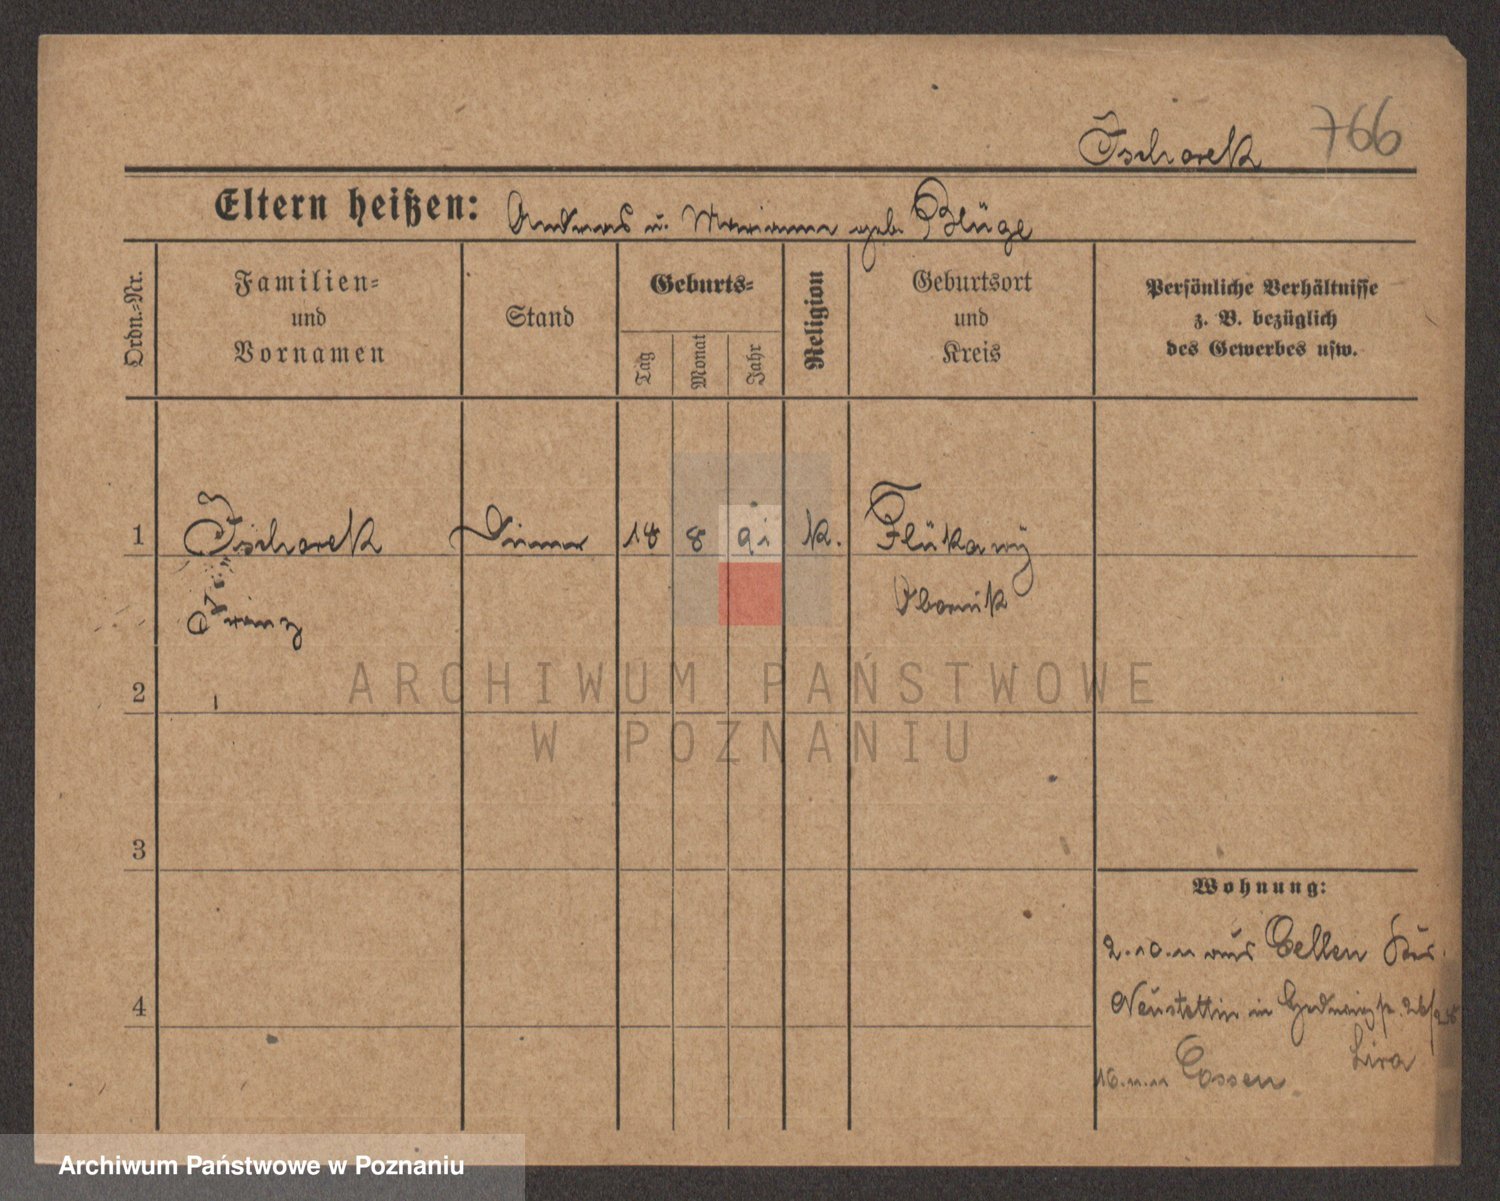 Tschorek 766
Eltern heißen: Andreas u. Marianna geb. Plüge
Ordn.-Nr.
Familien-
und
Vornamen
Stand
Geburts-
Tag
Monat
Jahr
Religion
Geburtsort
und
Kreis
Persönliche Verhältnisse
z. B. bezüglich
des Gewerbes usw.
1 Tschorek 18 8 91 k.
Franz Obornik
2
3
4
Wohnung:
2.10.11 aus Cellen Krs.
Neustettin in
16.11.11 Essen
ARCHIWUM PAŃSTWOWE
W POZNANIU
Archiwum Państwowe w Poznaniu